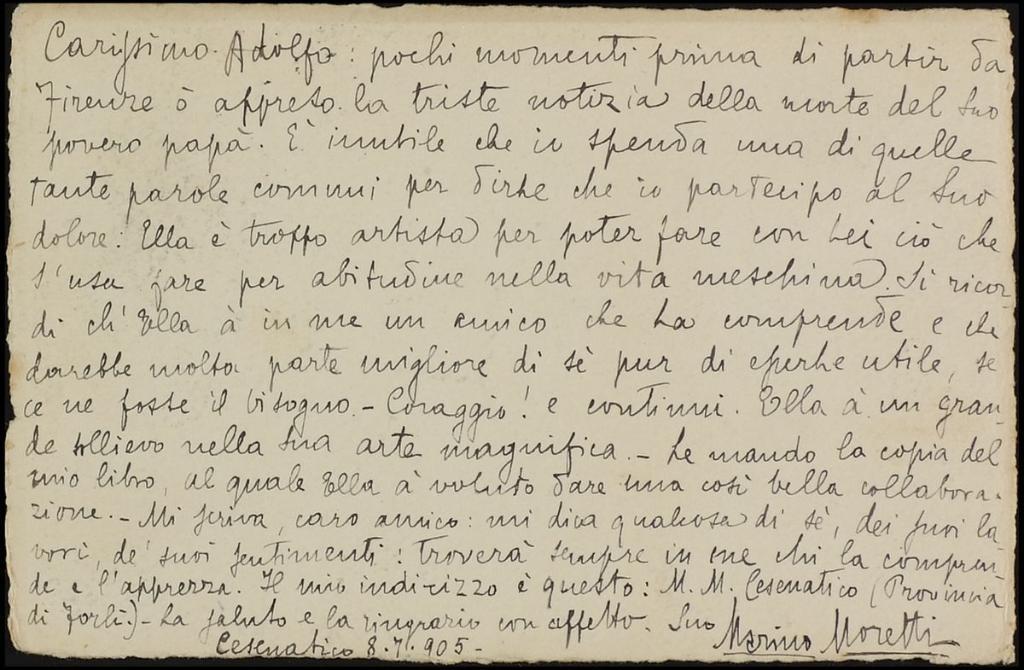 Carissimo Adolfo: pochi momenti prima di partir da
Firenze ò appreso la triste notizia della morte del Suo
povero papà. È inutile che io spenda una di quelle
tante parole comuni per dirLe che io partecipo al Suo
dolore: Ella è troppo artista per poter fare con Lei ciò che
s'usa fare per abitudine nella vita meschina. Si ricor-
di ch'Ella à in me un amico che La comprende e che
darebbe molta parte migliore di sè pur di esserLe utile, se
ce ne fosse il bisogno. - Coraggio! e continui. Ella à un gran-
de sollievo nella Sua arte magnifica. - Le mando la copia del
mio libro, al quale Ella à voluto dare una così bella collabora-
zione. - Mi scriva, caro amico: mi dica qualcosa di sè, dei suoi la-
vori, de' suoi sentimenti: troverà sempre in me chi la compren-
de e l'apprezza. Il mio indirizzo è questo: M. M. Cesenatico (Provincia
di Forlì.) - La saluto e la ringrazio con affetto. Suo Marino Moretti
Cesenatico 8.7.905 -